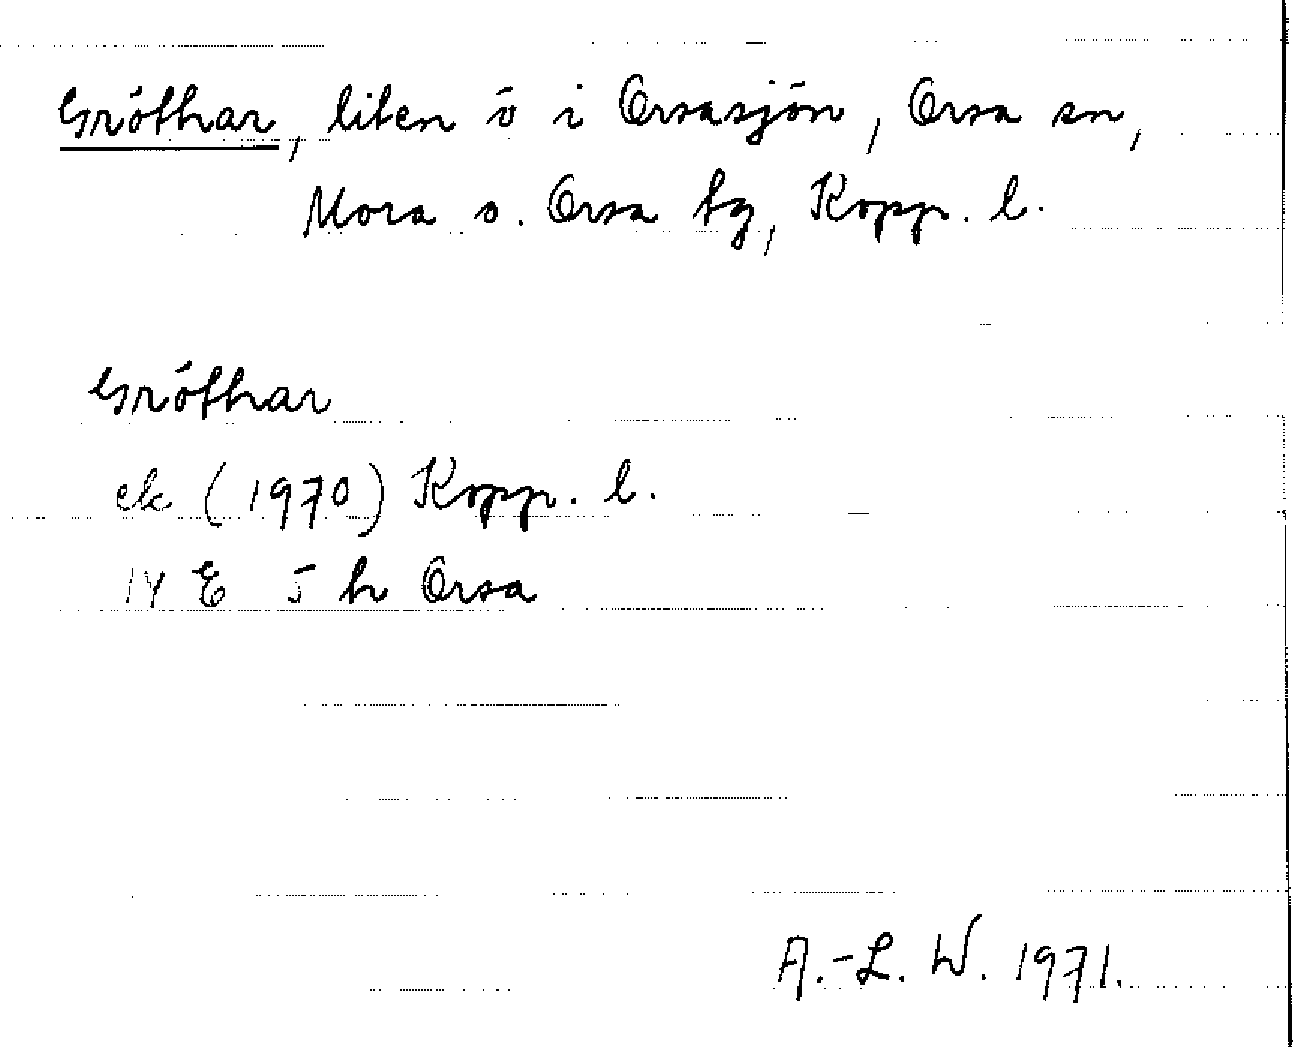 Gróthar, liten ö i Orsasjön, Orsa sn,
Mora o. Orsa tg, Kopp. l.
Gróthar
ek (1970) Kopp. l.
14 E 5 h Orsa
A.-L. W. 1971.